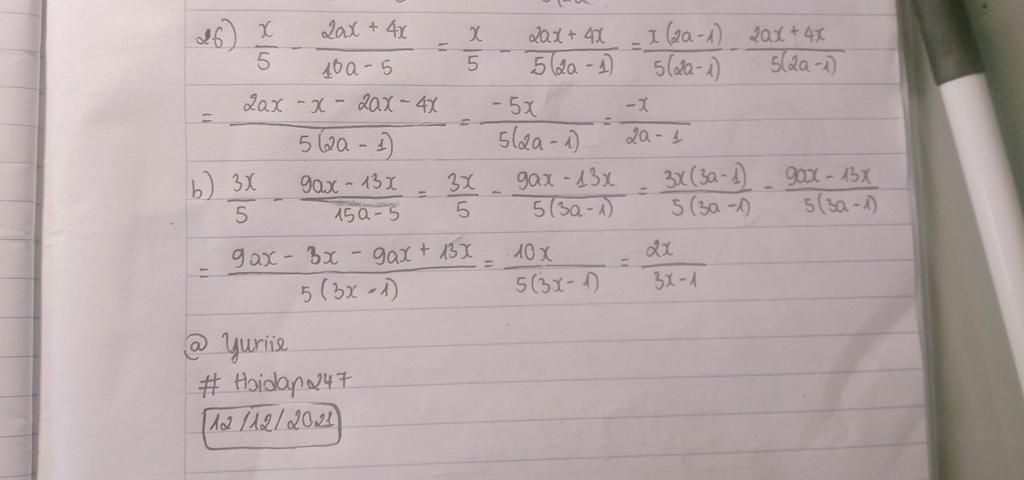 26) x/5 - (2ax + 4x)/(10a - 5) = x/5 - (2ax + 4x)/(5(2a - 1)) = x(2a-1)/(5(2a-1)) - (2ax + 4x)/(5(2a-1))
= (2ax - x - 2ax - 4x)/(5(2a - 1)) = -5x/(5(2a-1)) = -x/(2a-1)
b) 3x/5 - (9ax - 13x)/(15a-5) = 3x/5 - (9ax - 13x)/(5(3a-1)) = 3x(3a-1)/(5(3a-1)) - (9ax - 13x)/(5(3a-1))
= (9ax - 3x - 9ax + 13x)/(5(3x-1)) = 10x/(5(3x-1)) = 2x/(3x-1)
@ Yuriie
# Hoidap247
12/12/2021